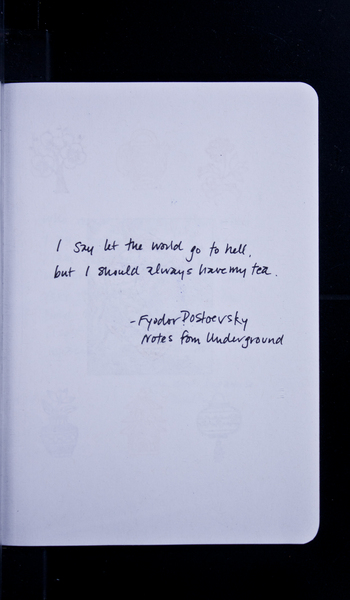 I say let the world go to hell,
but I should always have my tea.
-Fyodor Dostoevsky
Notes from Underground